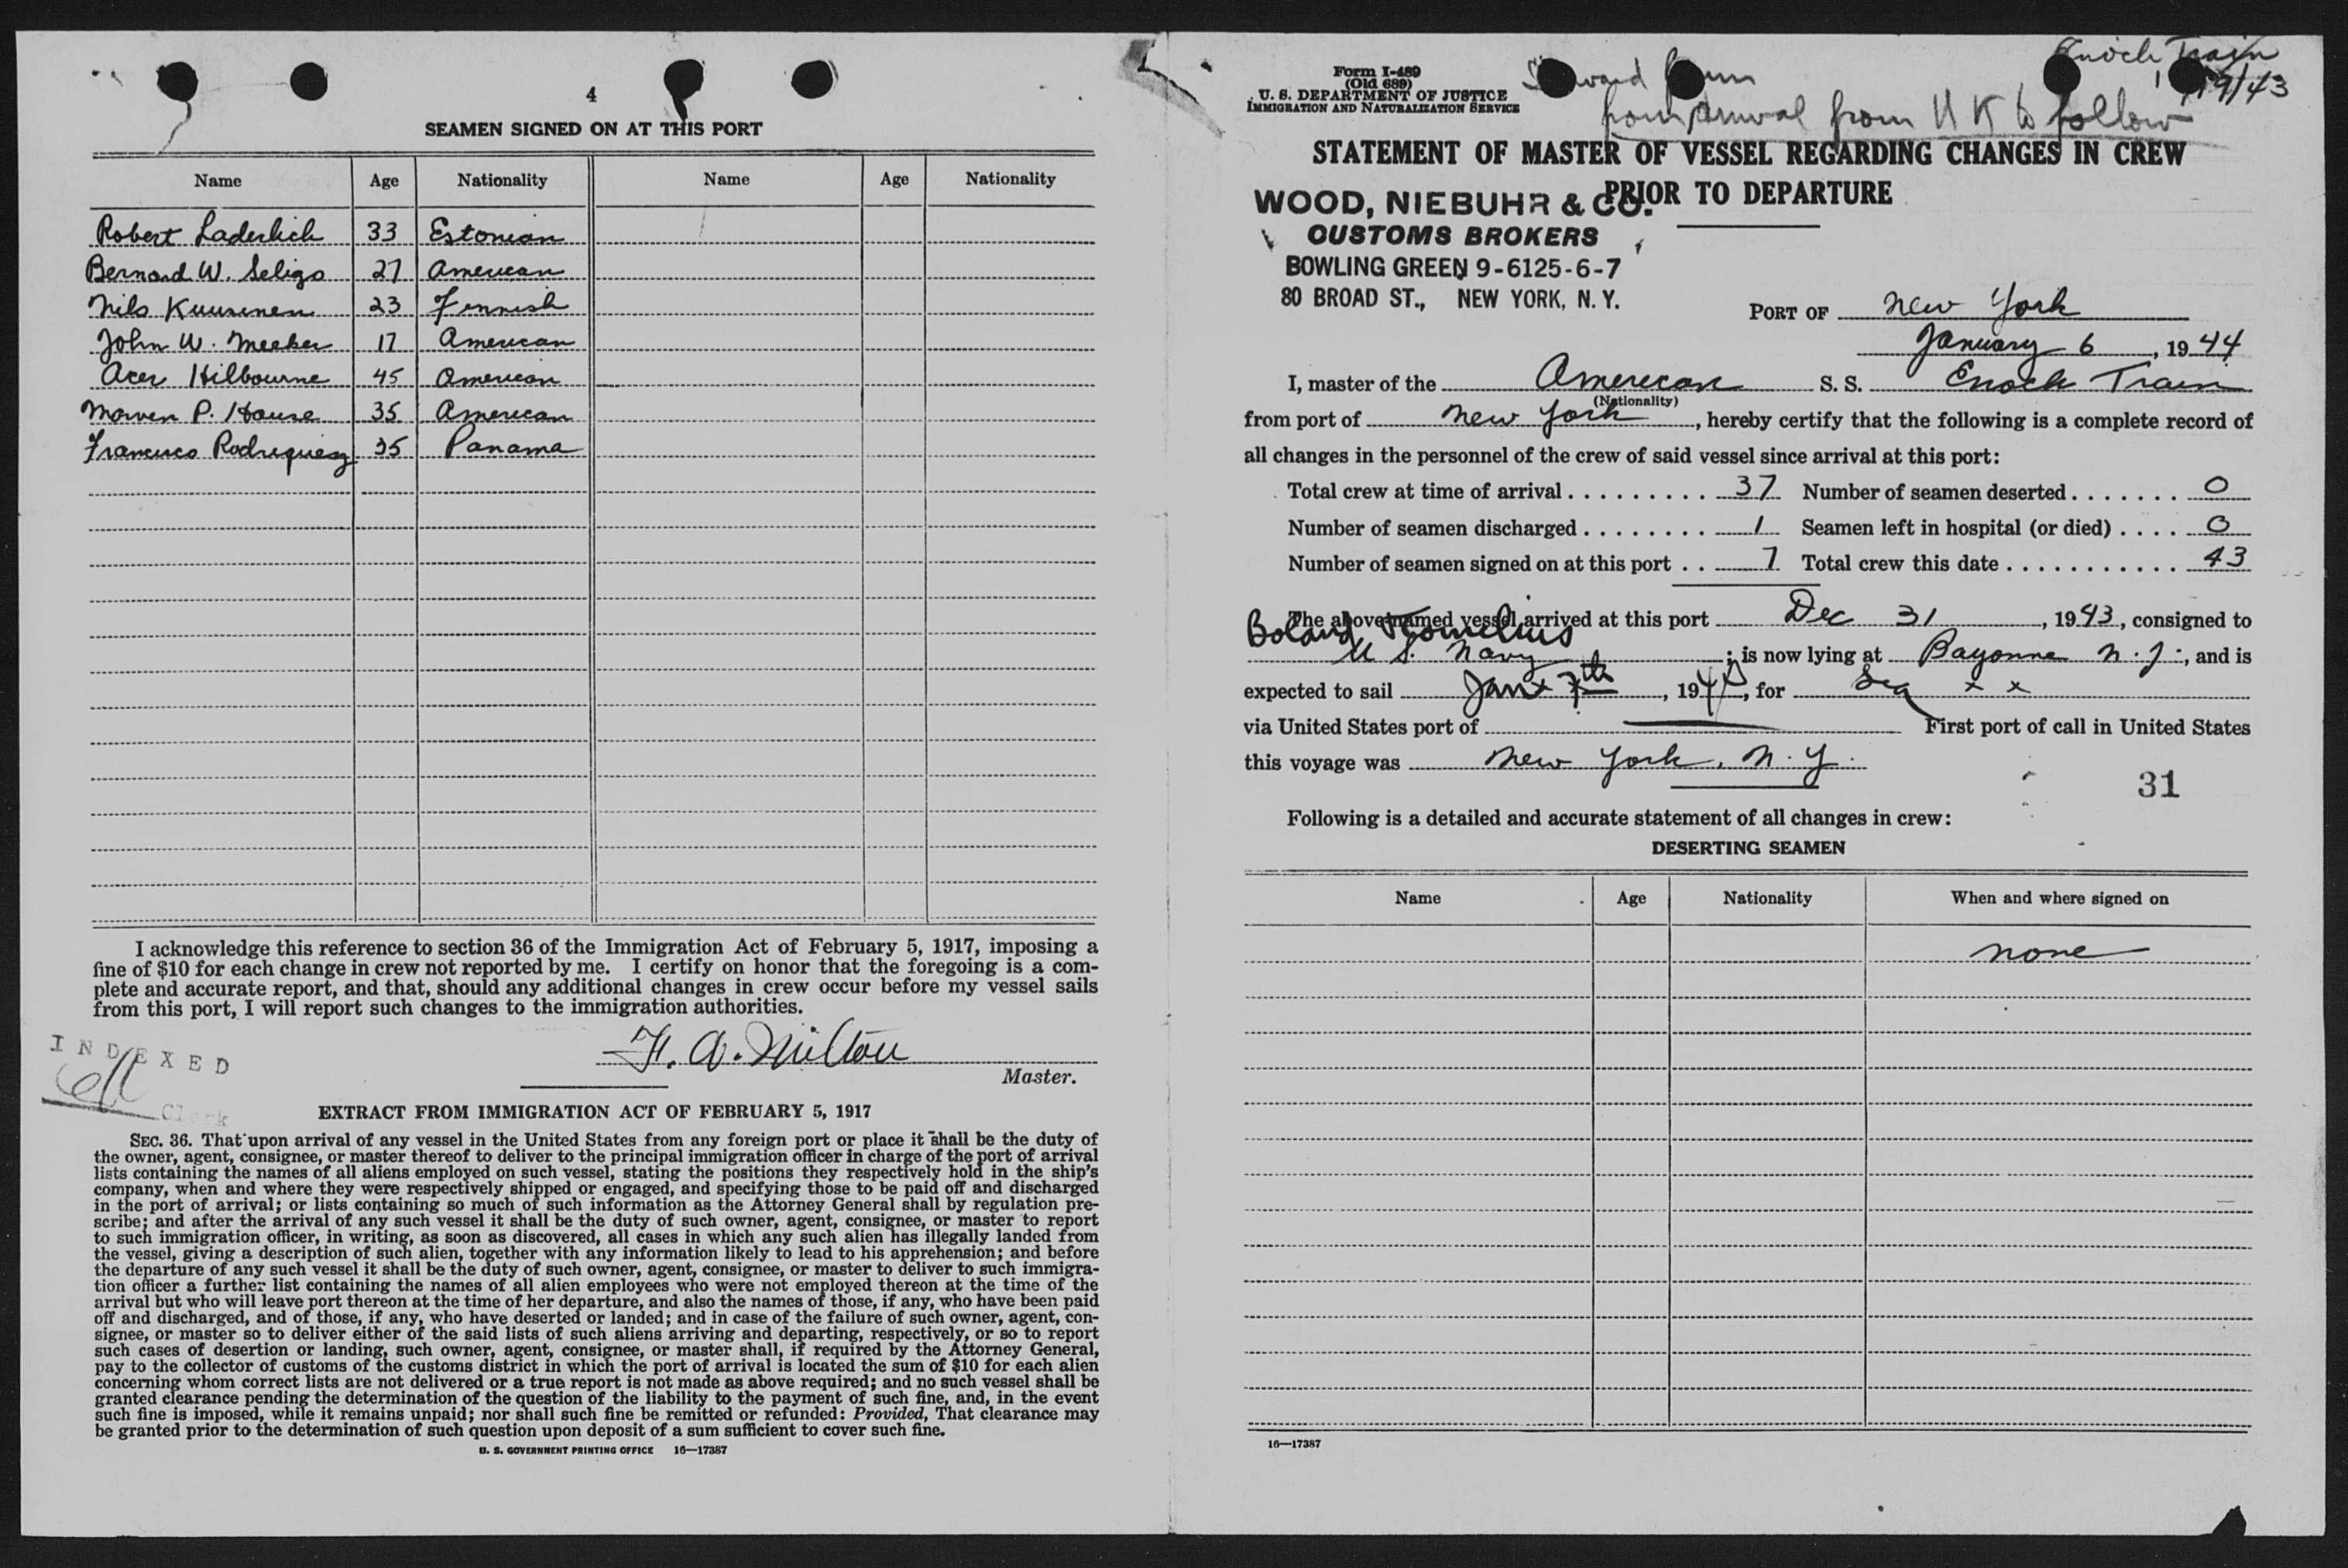 4
SEAMEN SIGNED ON AT THIS PORT
Name Age Nationality Name Age Nationality
Robert Laderlich 33 Estonian
Bernard W. Seligo 27 American
Nils Kuusinen 23 Finnish
John W. Meeker 17 American
Acer Hilbourne 45 American
Morven P. House 35 American
Francisco Rodriquez 35 Panama
I acknowledge this reference to section 36 of the Immigration Act of February 5, 1917, imposing a
fine of $10 for each change in crew not reported by me. I certify on honor that the foregoing is a com-
plete and accurate report, and that, should any additional changes in crew occur before my vessel sails
from this port, I will report such changes to the immigration authorities.
INDEXED
Clerk
H. A. Milton
Master.
EXTRACT FROM IMMIGRATION ACT OF FEBRUARY 5, 1917
SEC. 36. That upon arrival of any vessel in the United States from any foreign port or place it shall be the duty of
the owner, agent, consignee, or master thereof to deliver to the principal immigration officer in charge of the port of arrival
lists containing the names of all aliens employed on such vessel, stating the positions they respectively hold in the ship's
company, when and where they were respectively shipped or engaged, and specifying those to be paid off and discharged
in the port of arrival; or lists containing so much of such information as the Attorney General shall by regulation pre-
scribe; and after the arrival of any such vessel it shall be the duty of such owner, agent, consignee, or master to report
to such immigration officer, in writing, as soon as discovered, all cases in which any such alien has illegally landed from
the vessel, giving a description of such alien, together with any information likely to lead to his apprehension; and before
the departure of any such vessel it shall be the duty of such owner, agent, consignee, or master to deliver to such immigra-
tion officer a further list containing the names of all alien employees who were not employed thereon at the time of the
arrival but who will leave port thereon at the time of her departure, and also the names of those, if any, who have been paid
off and discharged, and of those, if any, who have deserted or landed; and in case of the failure of such owner, agent, con-
signee, or master so to deliver either of the said lists of such aliens arriving and departing, respectively, or so to report
such cases of desertion or landing, such owner, agent, consignee, or master shall, if required by the Attorney General,
pay to the collector of customs of the customs district in which the port of arrival is located the sum of $10 for each alien
concerning whom correct lists are not delivered or a true report is not made as above required; and no such vessel shall be
granted clearance pending the determination of the question of the liability to the payment of such fine, and, in the event
such fine is imposed, while it remains unpaid; nor shall such fine be remitted or refunded: Provided, That clearance may
be granted prior to the determination of such question upon deposit of a sum sufficient to cover such fine.
U. S. GOVERNMENT PRINTING OFFICE 16—17387
Enoch Train
Form I-489
(Old 689)
U. S. DEPARTMENT OF JUSTICE
IMMIGRATION AND NATURALIZATION SERVICE
from arrival from U K to follow
STATEMENT OF MASTER OF VESSEL REGARDING CHANGES IN CREW
PRIOR TO DEPARTURE
WOOD, NIEBUHR & CO.
CUSTOMS BROKERS
BOWLING GREEN 9-6125-6-7
80 BROAD ST., NEW YORK, N. Y.
PORT OF New York
January 6, 1944
I, master of the American S. S. Enoch Train
(Nationality)
from port of New York, hereby certify that the following is a complete record of
all changes in the personnel of the crew of said vessel since arrival at this port:
Total crew at time of arrival . . . . . . . . . 37 Number of seamen deserted . . . . . . . 0
Number of seamen discharged . . . . . . . . 1 Seamen left in hospital (or died) . . . . 0
Number of seamen signed on at this port . . 7 Total crew this date . . . . . . . . . . . 43
The above-named vessel arrived at this port Dec 31, 1943, consigned to
Boland & Cornelius
U S. Navy; is now lying at Bayonne N. J., and is
expected to sail Jan 7th, 194, for Sea x x
via United States port of First port of call in United States
this voyage was New York, N. Y.
31
Following is a detailed and accurate statement of all changes in crew:
DESERTING SEAMEN
Name Age Nationality When and where signed on
none
16—17387